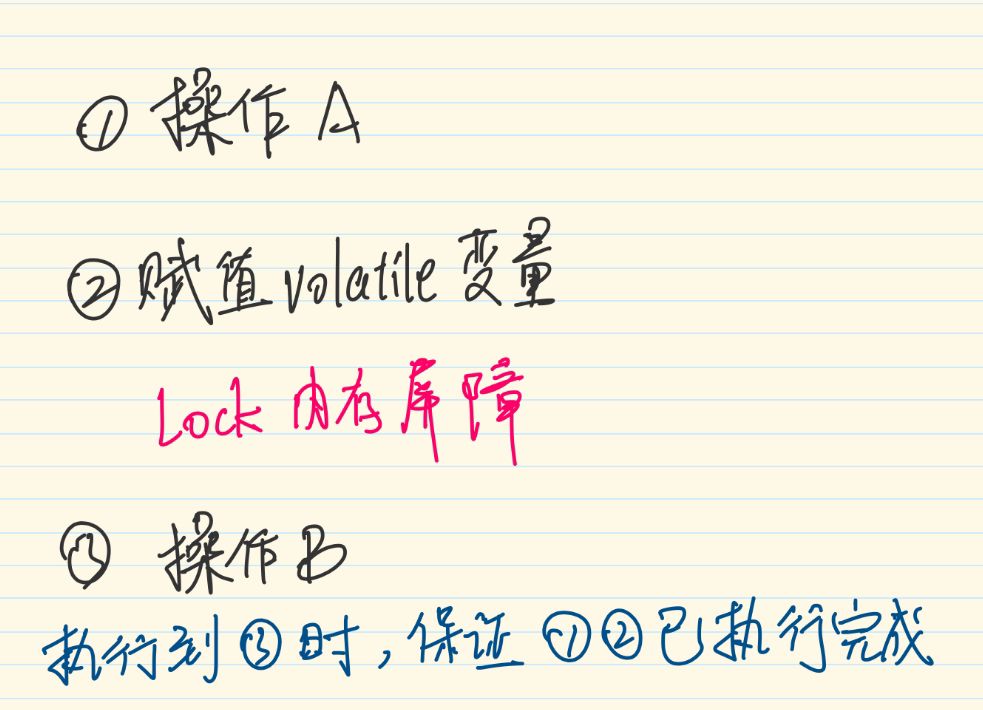 ① 操作 A
② 赋值 volatile 变量
Lock 内存屏障
③ 操作 B
执行到③时,保证 ①②已执行完成